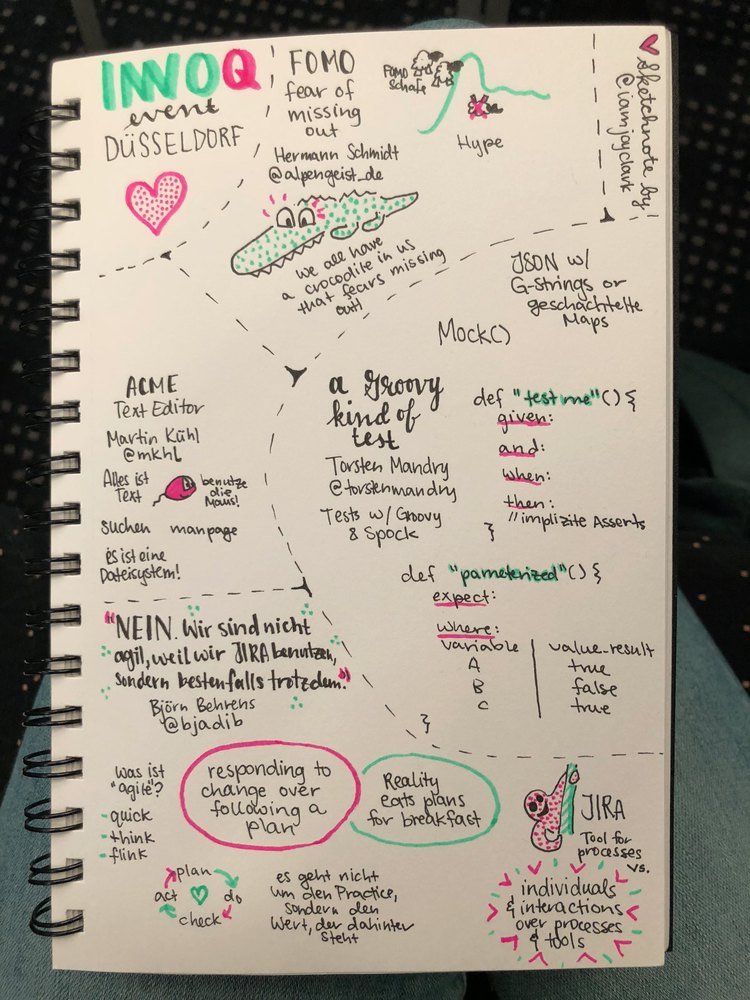 INNOQ
event
DÜSSELDORF
FOMO
fear of
missing
out
Hermann Schmidt
@alpengeist_de
FOMO
Schafe
Hype
♥ Sketchnote by!
@iamjayclark
we all have
a crocodile in us
that fears missing
out!
JSON w/
G-Strings or
geschachtelte
Maps
Mock()
ACME
Text Editor
Martin Kühl
@mkhl
Alles ist
Text
benutze
die
Maus!
suchen manpage
es ist eine
Dateisystem!
a Groovy
kind of
test
Torsten Mandry
@torstenmandry
Tests w/ Groovy
& Spock
def "test me"() {
given:
and:
when:
then:
// implizite Asserts
}
def "pameterized"() {
expect:
where:
variable | value_result
A | true
B | false
C | true
}
"NEIN. Wir sind nicht
agil, weil wir JIRA benutzen,
sondern bestenfalls trotzdem."
Björn Behrens
@bjadib
Was ist
"agile"?
- quick
- think
- flink
responding to
change over
following a
plan
Reality
eats plans
for breakfast
plan
do
check
act
es geht nicht
um den Practice,
sondern den
Wert, der dahinter
steht
JIRA
Tool for
processes
vs.
individuals
& interactions
over processes
& tools